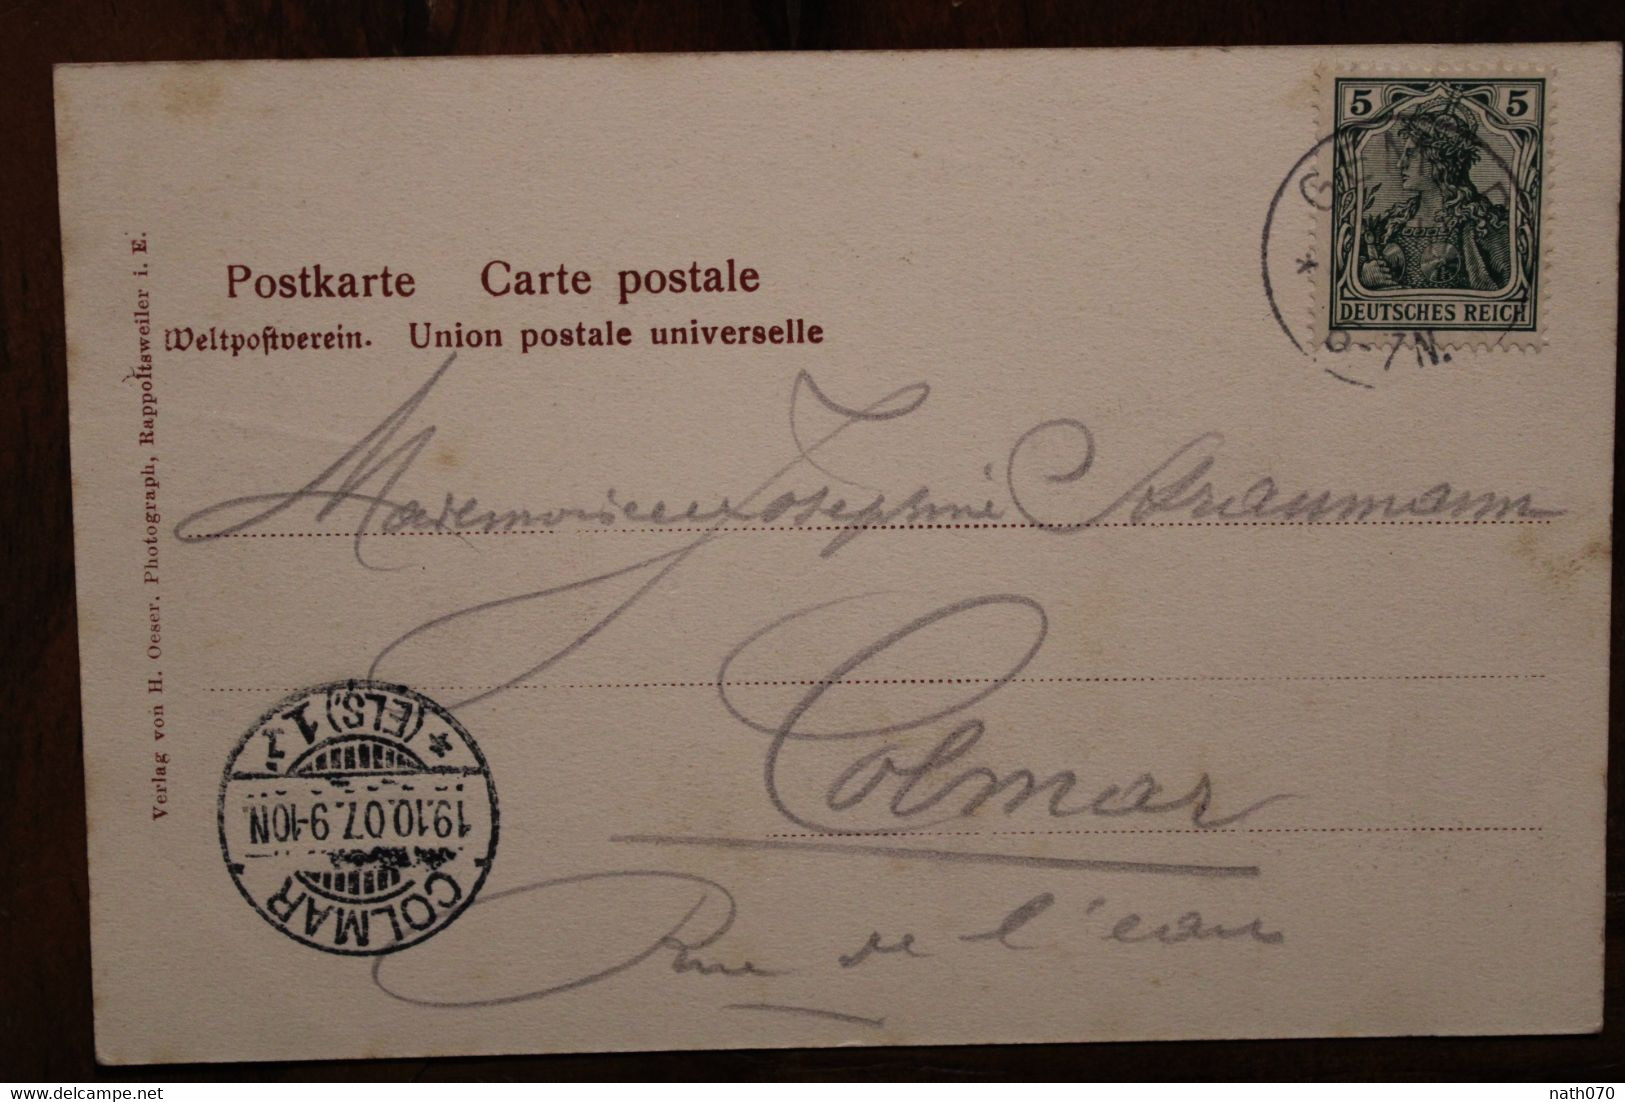 Postkarte Carte postale
Weltpostverein. Union postale universelle
5 5
DEUTSCHES REICH
6-7N.
Verlag von H. Oeser. Photograph, Rappoltsweiler i. E.
Mademoiselle Josephine Straumann
Colmar
Rue de l'eau
COLMAR
19.10.07.9-10N.
* (ELS.) 1
delcampe.net
nath070